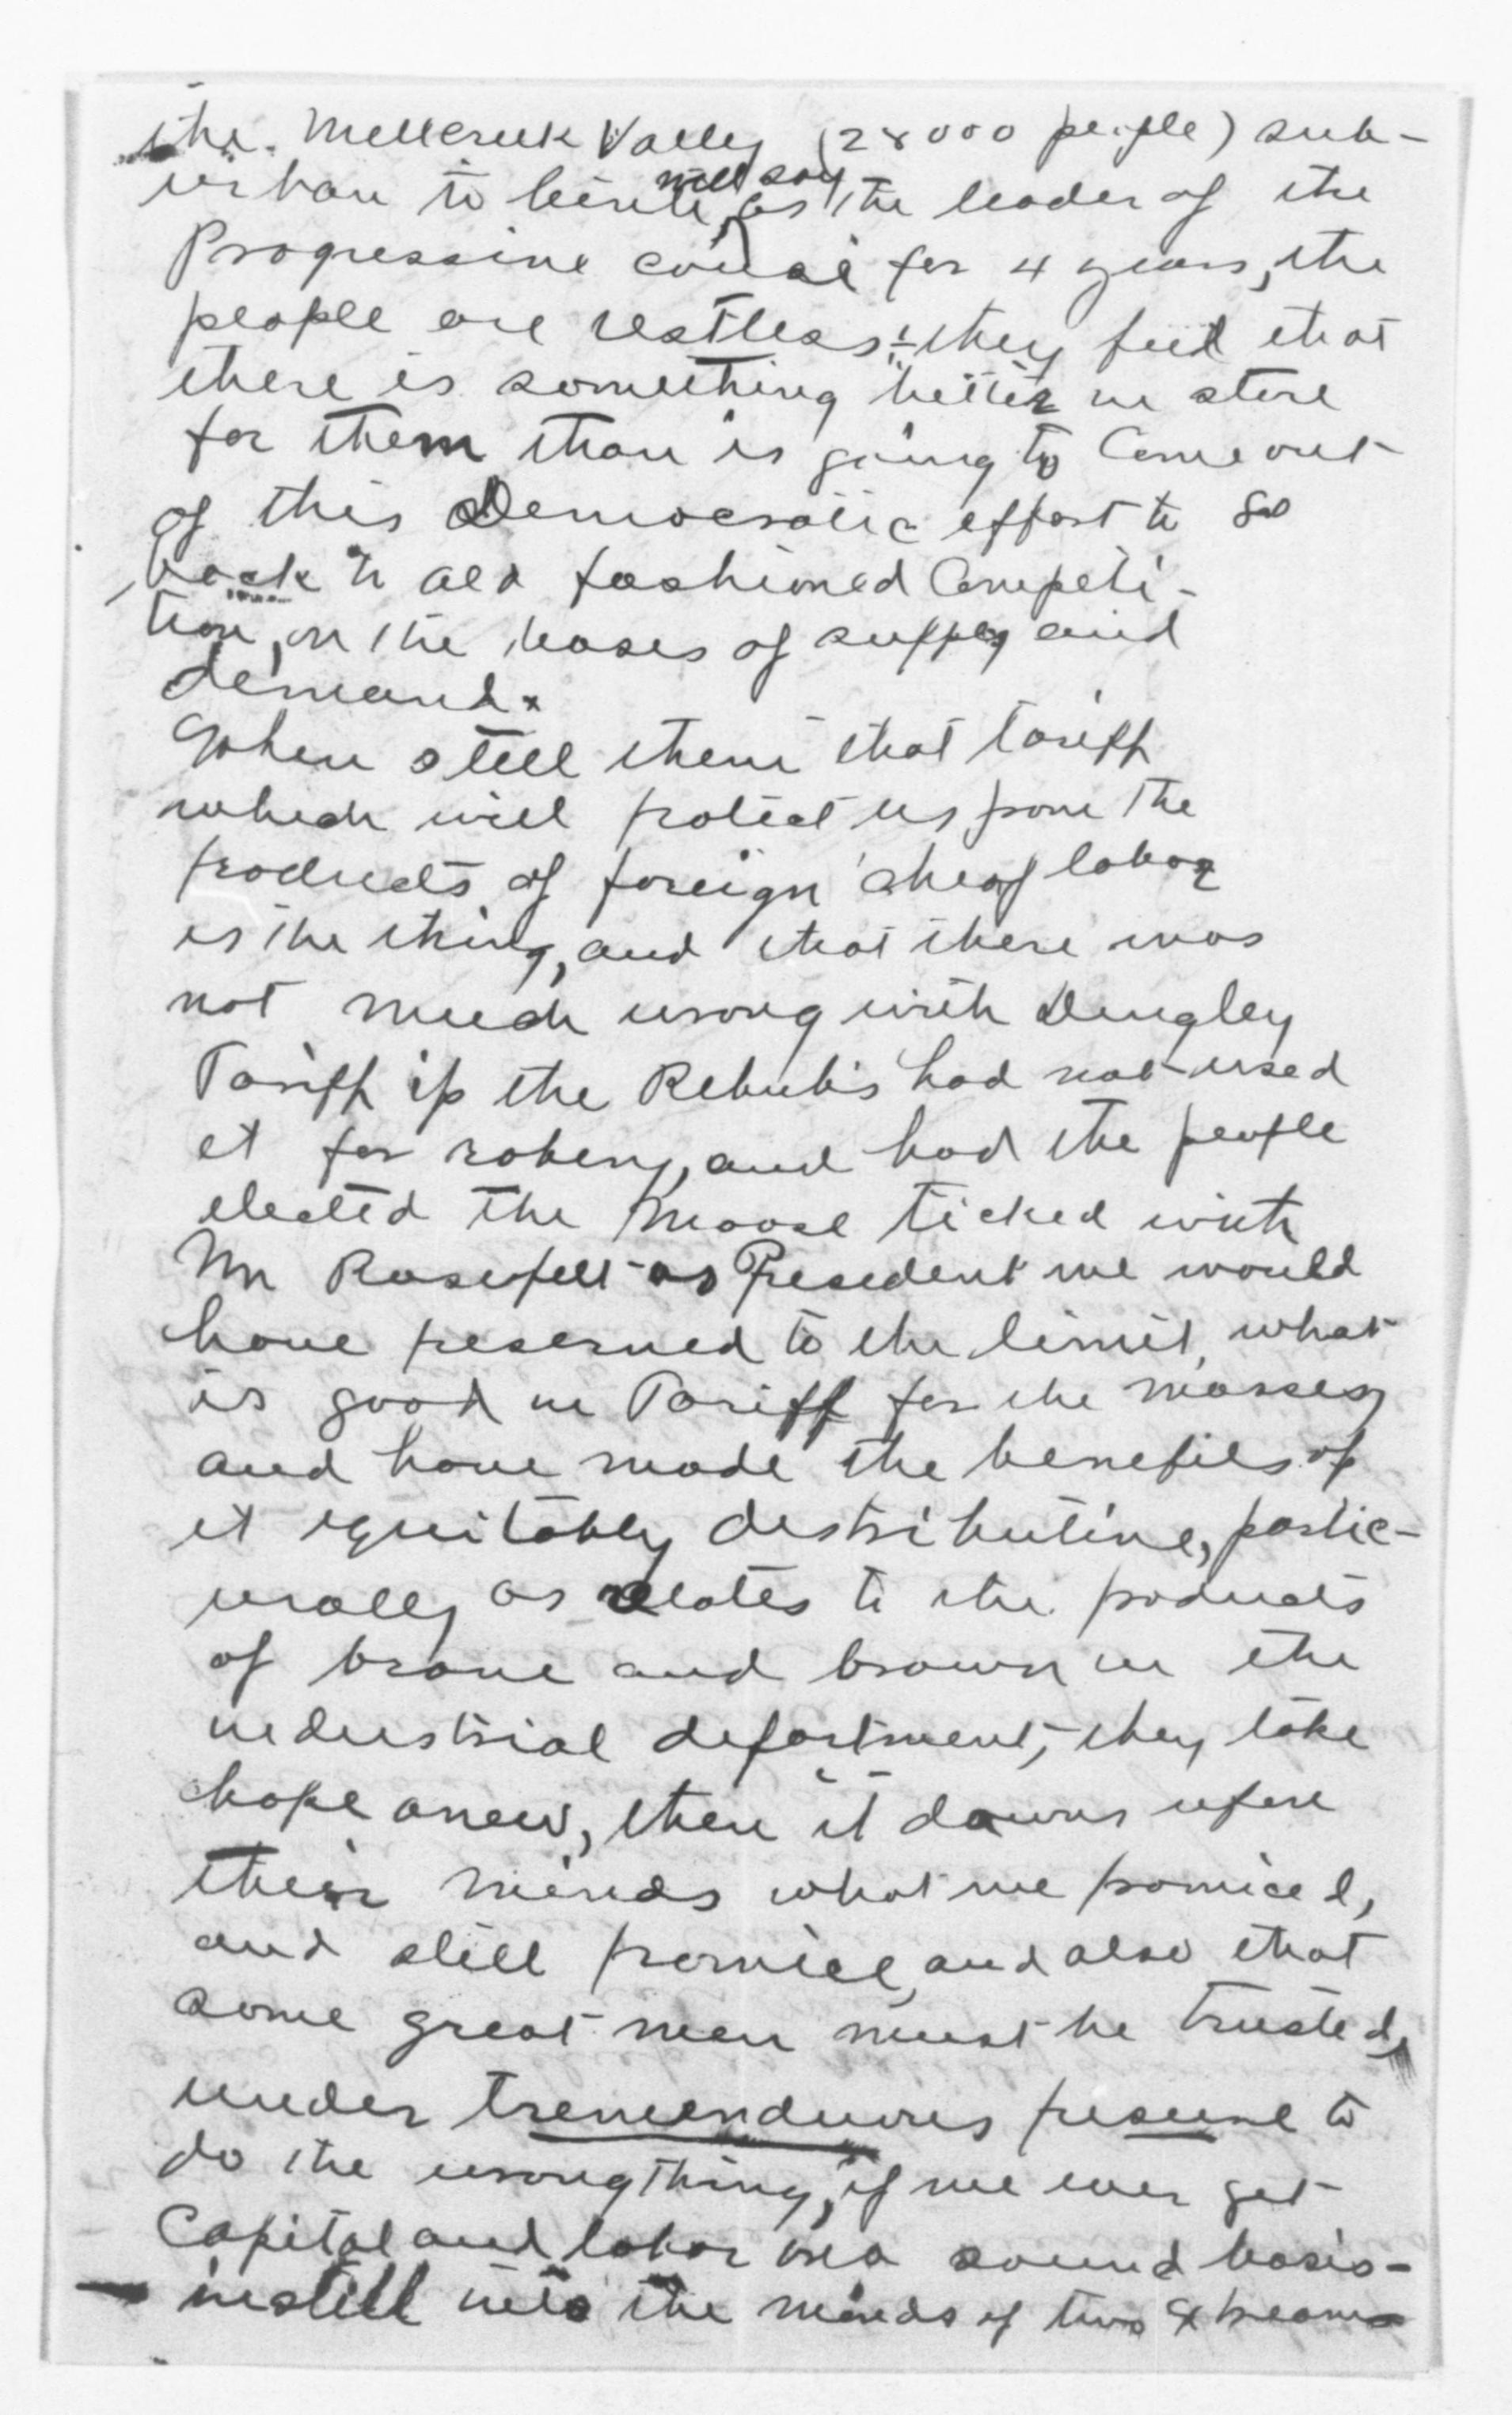 the Millcreek Valley (28000 people) sub-
urban to will say as the leader of the
Progressive couse for 4 years, the
people are restless:- they feel that
there is something better in store
for them than is going to Come out
of this Democratic effort to go
back to old fashioned Competi-
tion, on the bases of supply and
demand.
When I tell them that tariff
which will protect us from the
products of foreign cheap labor
is the thing, and that there was
not much wrong with Dingley
Tariff if the Rebub's had not used
it for robery, and had the people
elected the Moose ticked with
Mr Rosefelt as President we would
have preserved to the limit, what
is good in Tariff for the masses
and have made the benefits of
it equitably distributive, partic-
urally as relates to the products
of brane and brown in the
industrial department, they take
hope anew, then it dawns upon
their minds what we promiced,
and still promice, and also that
some great men must be trusted,
under tremenduous presure to
do the wrong thing, if we ever get
Capital and labor on a sound basis-
instill into the minds of two extreams